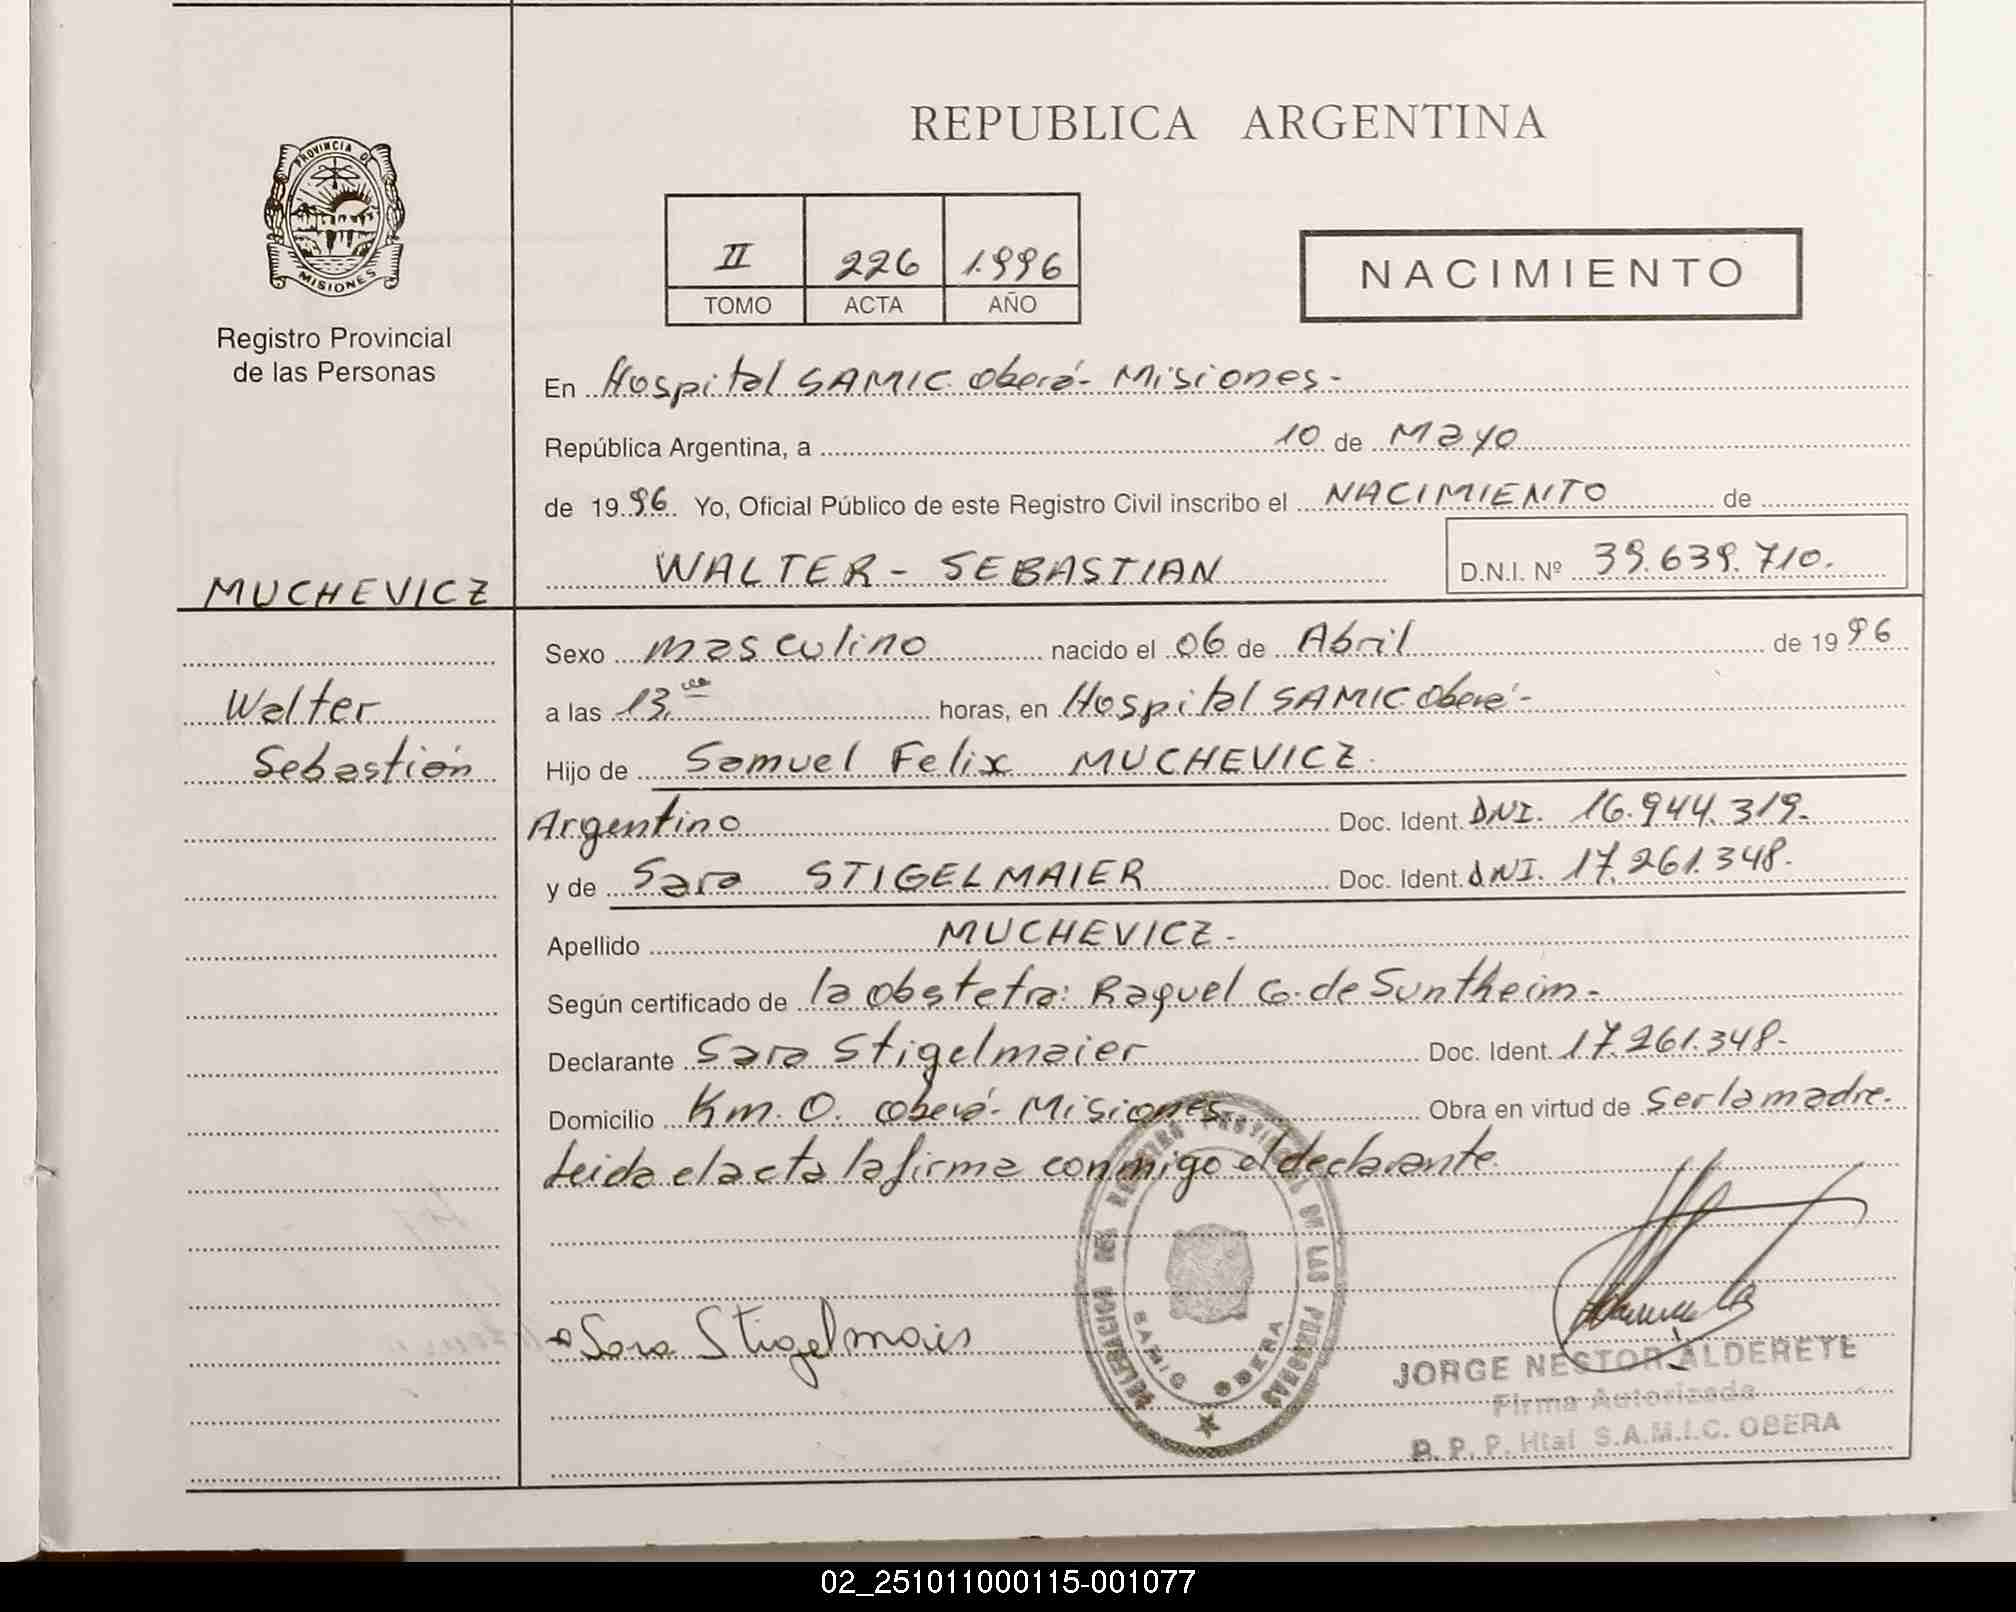 REPUBLICA ARGENTINA
PROVINCIA DE
MISIONES
Registro Provincial
de las Personas
II 226 1.996
TOMO ACTA AÑO
NACIMIENTO
En Hospital SAMIC. Oberá- Misiones-
República Argentina, a 10 de Mayo
de 1996. Yo, Oficial Público de este Registro Civil inscribo el NACIMIENTO de
MUCHEVICZ
WALTER- SEBASTIAN D.N.I. Nº 39.639.710.
Sexo masculino nacido el 06 de Abril de 1996
Walter
Sebastián
a las 13. horas, en Hospital SAMIC Oberá-
Hijo de Samuel Felix MUCHEVICZ.
Argentino Doc. Ident. DNI. 16.944.319.
y de Sara STIGELMAIER Doc. Ident. DNI. 17.261.348.
Apellido MUCHEVICZ-
Según certificado de la obstetra: Raquel G. de Suntheim-
Declarante Sara Stigelmaier Doc. Ident. 17.261.348-
Domicilio Km. 0. Oberá- Misiones Obra en virtud de ser la madre.
Leida el acta la firma conmigo el declarante.
Sara Stigelmaier
DELEGACION DEL REGISTRO PROVINCIAL DE LAS PERSONAS
SAMIC OBERA
JORGE NESTOR ALDERETE
Firma Autorizada
R. P. P. Htal S.A.M.I.C. OBERA
02_251011000115-001077